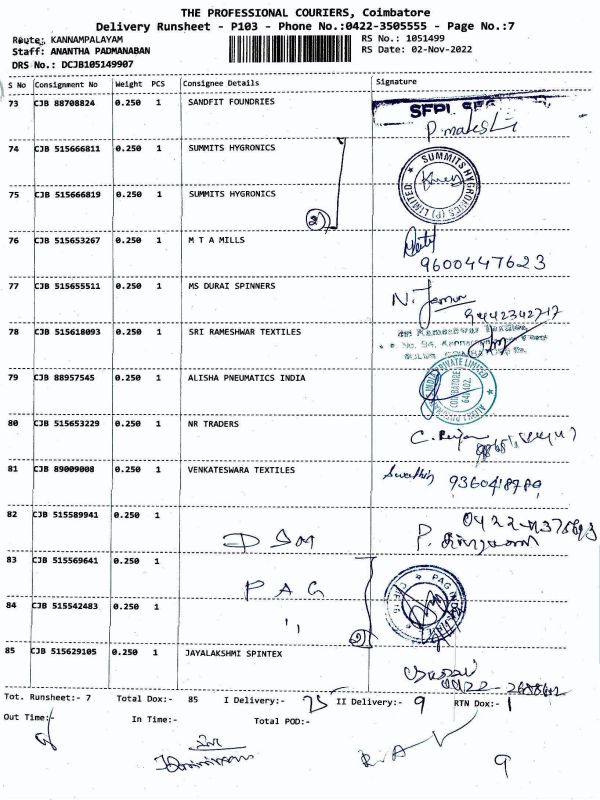 THE PROFESSIONAL COURIERS, Coimbatore
Delivery Runsheet - P103 - Phone No.:0422-3505555 - Page No.:7
Route: KANNAMPALAYAM
RS No.: 1051499
Staff: ANANTHA PADMANABAN
RS Date: 02-Nov-2022
DRS No.: DCJB105149907
S No Consignment No Weight PCS Consignee Details Signature
73 CJB 88708824 0.250 1 SANDFIT FOUNDRIES
74 CJB 515666811 0.250 1 SUMMITS HYGRONICS
SUMMITS HYGRONICS (P) LIMITED
75 CJB 515666819 0.250 1 SUMMITS HYGRONICS
2
76 CJB 515653267 0.250 1 M T A MILLS
9600447623
77 CJB 515655511 0.250 1 MS DURAI SPINNERS
9442342717
78 CJB 515618093 0.250 1 SRI RAMESHWAR TEXTILES
79 CJB 88957545 0.250 1 ALISHA PNEUMATICS INDIA
80 CJB 515653229 0.250 1 NR TRADERS
81 CJB 89009008 0.250 1 VENKATESWARA TEXTILES
Swathin
82 CJB 515589941 0.250 1
83 CJB 515569641 0.250 1 PAG
84 CJB 515542483 0.250 1 ''
85 CJB 515629105 0.250 1 JAYALAKSHMI SPINTEX
Tot. Runsheet:- 7 Total Dox:- 85 I Delivery:- 75 II Delivery:- 9 RTN Dox:- 1
Out Time:- In Time:- Total POD:-
9